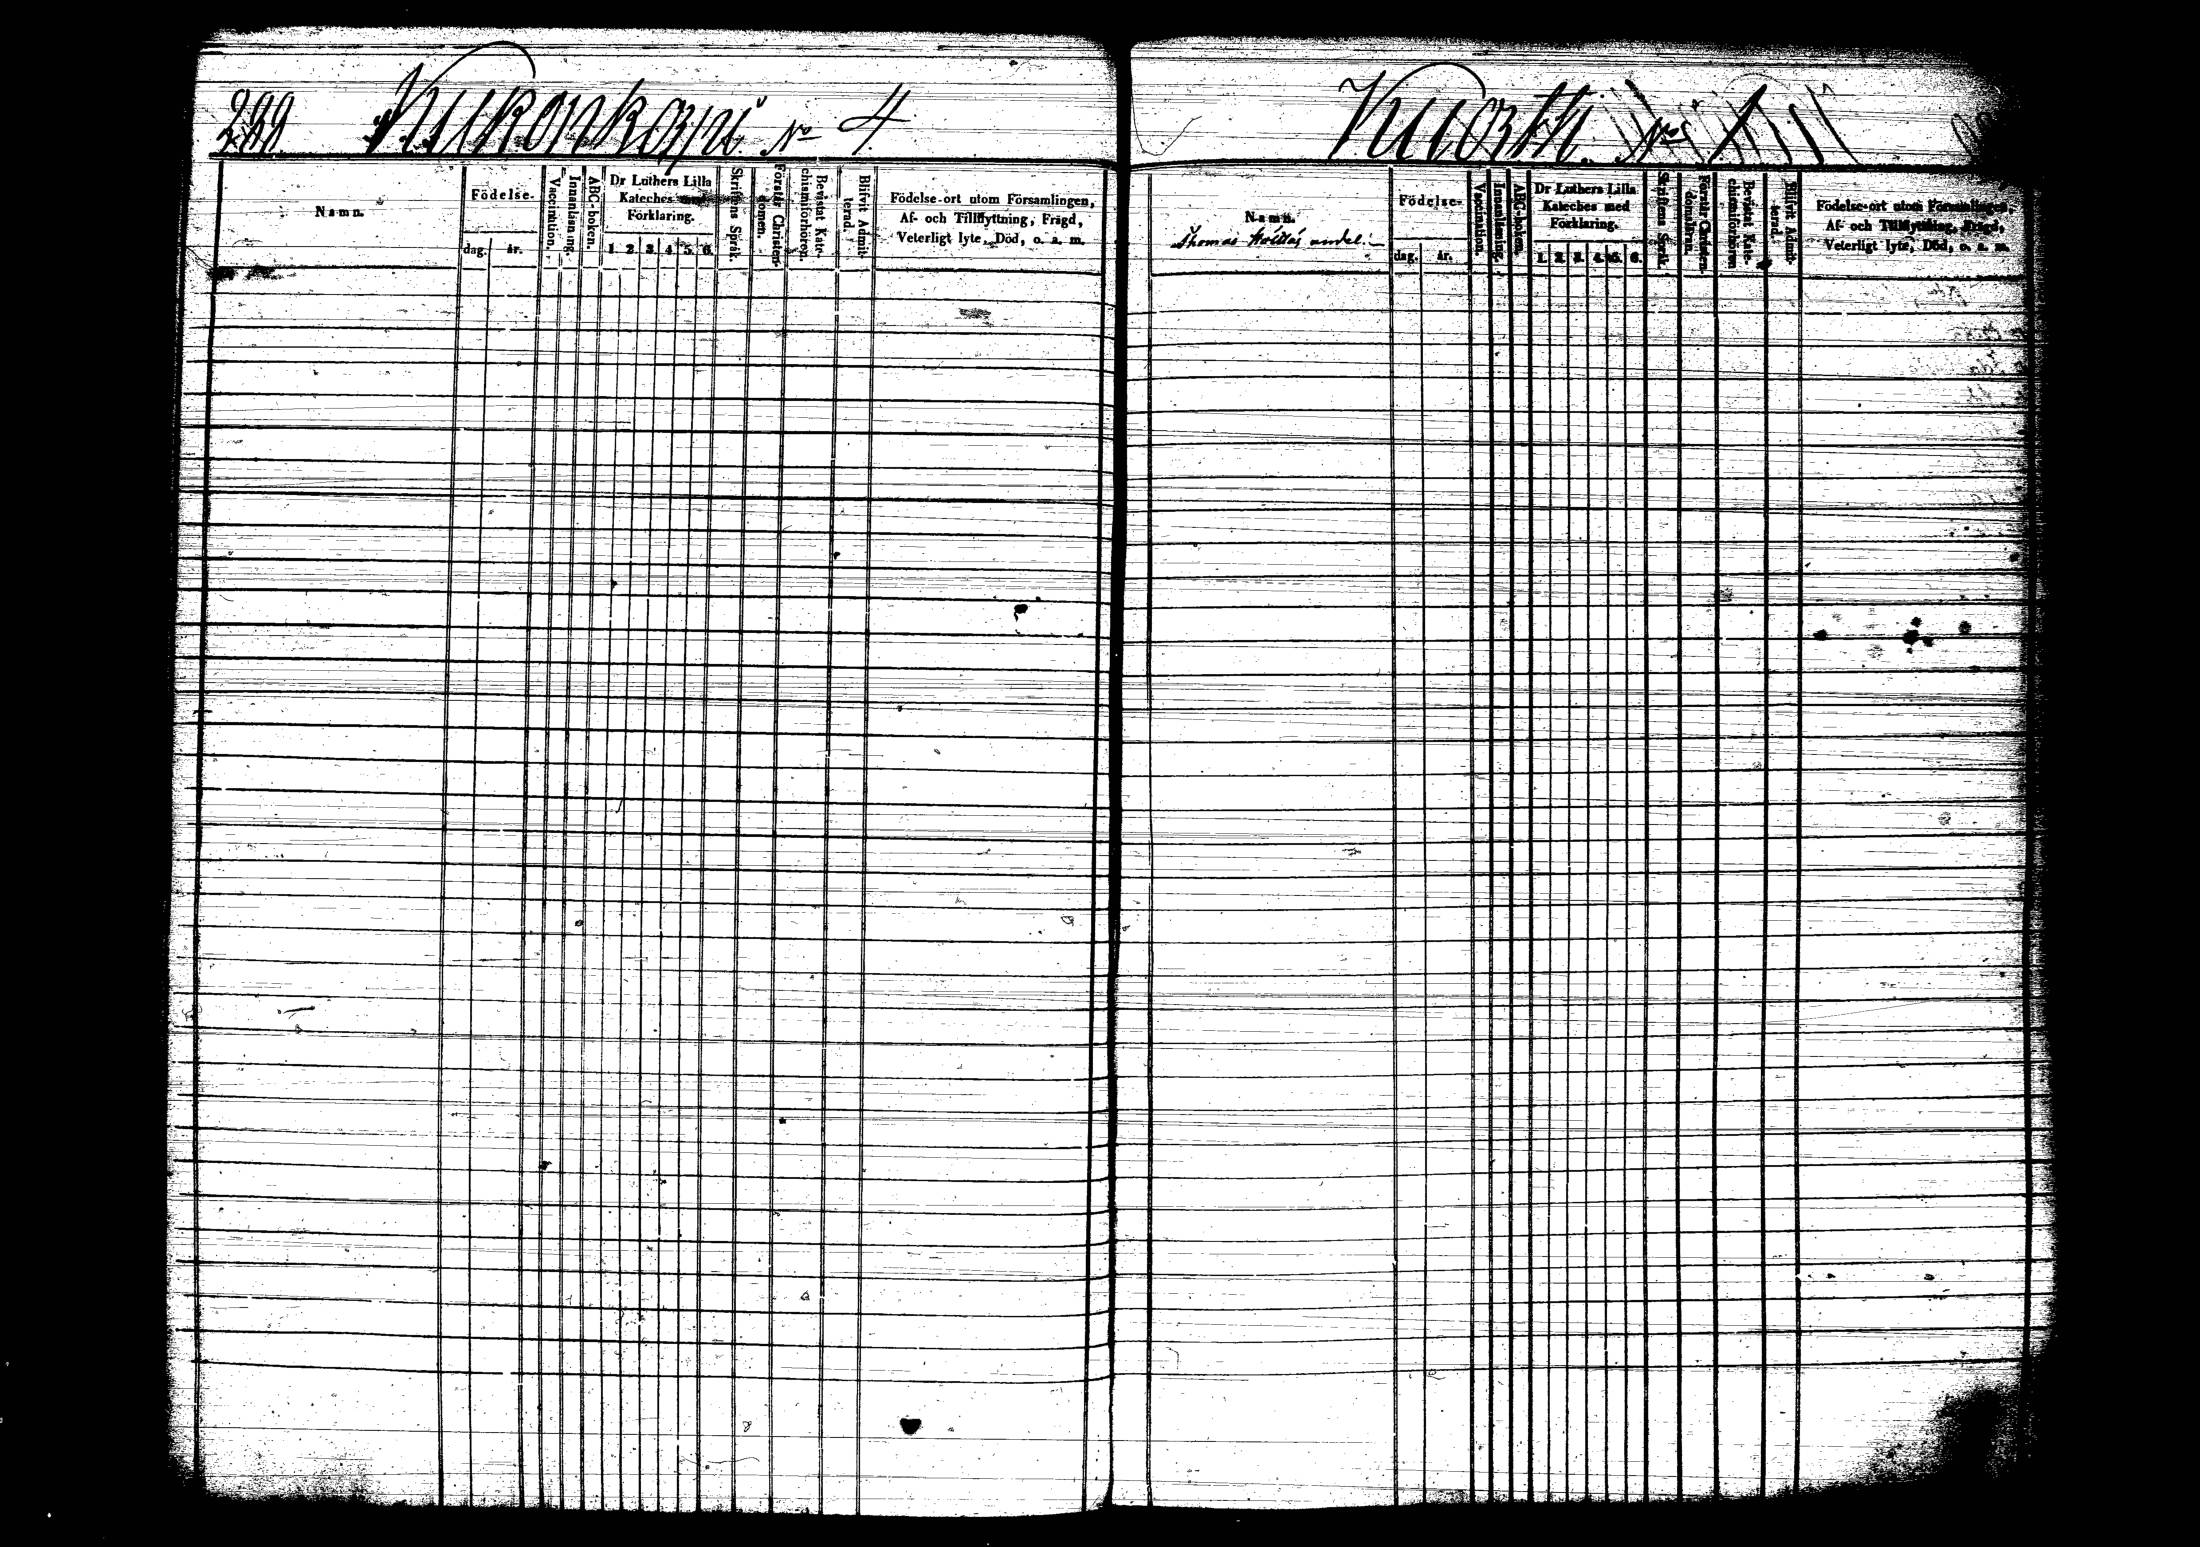 Kuckonkorpi No 4.
Namn.
Födelse-
dag.
år.
Vaccination.
Innanläsning.
ABC-boken.
Dr Luthers Lilla
Kateches
Förklaring.
1 2 3 4 5 6.
Skriftens Språk.
Förstår Christen-
domen.
Bevistat Kate-
chismiförhören.
Blifvit Admit-
terad.
Födelse-ort utom Församlingen,
Af- och Tillflyttning, Frägd,
Veterligt lyte, Död, o. a. m.
No
Namn.
Thomas
Födelse-
dag.
år.
Vaccination.
Innanläsning.
ABC-boken.
Dr Luthers Lilla
Kateches med
Förklaring.
1. 2. 3. 4. 5. 6.
Skriftens Språk.
Förstår Christen-
domslären.
Bevistat Kate-
chismiförhören
Blifvit Admit-
terad.
Födelse-ort utom Församlingen,
Af- och Tillflyttning, Frägd,
Veterligt lyte, Död, o. a. m.